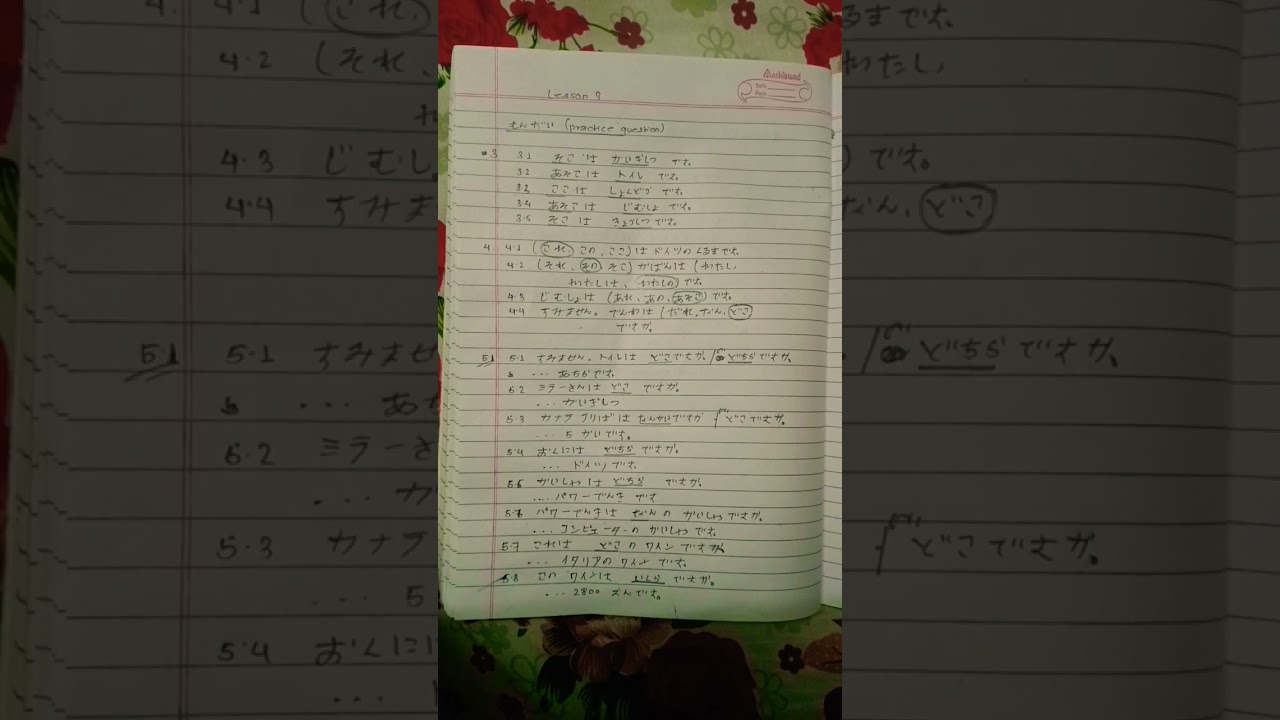 Lesson 3
もんだい (practice question)
3 3.1 そこは かいぎしつ です。
3.2 あそこは トイレ です。
3.3 ここは しょくどう です。
3.4 あそこは じむしょ です。
3.5 そこは きょうしつ です。
4. 4.1 (これ, この, ここ) は ドイツの くるまです。
4.2 (それ、その, そこ) かばんは (わたし,
わたしは、わたしの) です。
4.3 じむしょは (あれ、あの, あそこ) です。
4.4 すみません。でんわは (だれ, なん, どこ
ですか。
5.1 5.1 すみません。トイレは どこですか。/ どちらですか。
... あちらです。
5.2 ミラーさんは どこ ですか。
... かいぎしつ
5.3 なんかいですか / どこですか。
... 5 かいです。
5.4 おくには どちら ですか。
... ドイツ です。
5.5 かいしゃは どちら ですか。
.... パワーでんき です
5.6 パワーでんきは なんの かいしゃ ですか。
... コンピューターの かいしゃ です。
5.7 これは どこの ワイン ですか。
... イタリアの ワイン です。
5.8 この ワインは いくら ですか。
... 2800 えんです。